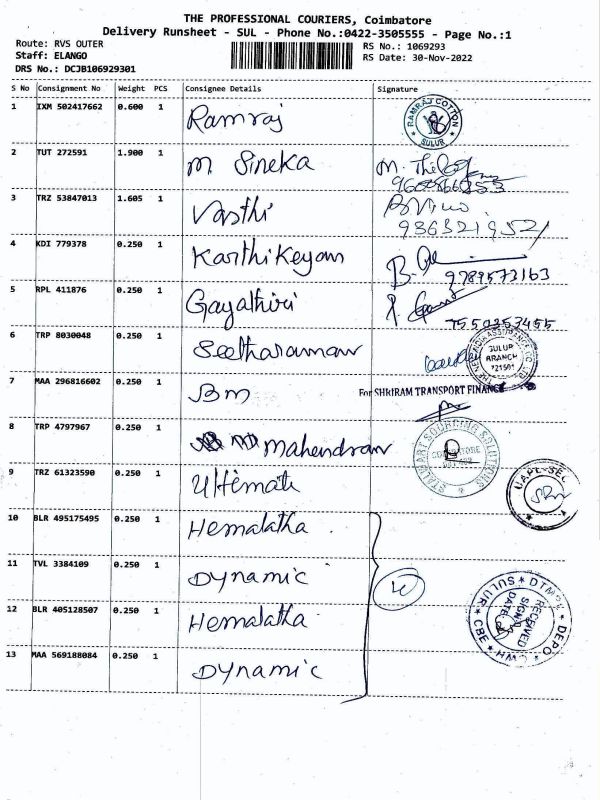 THE PROFESSIONAL COURIERS, Coimbatore
Delivery Runsheet - SUL - Phone No.:0422-3505555 - Page No.:1
Route: RVS OUTER
RS No.: 1069293
Staff: ELANGO
RS Date: 30-Nov-2022
DRS No.: DCJB106929301
S No Consignment No Weight PCS Consignee Details Signature
1 IXM 502417662 0.600 1 Ramraj RAMRAJ COTTON SULUR
2 TUT 272591 1.900 1 M. Sineka M.
3 TRZ 53847013 1.605 1 Vasthi
9363219521
4 KDI 779378 0.250 1 Karthikeyan B.
9789573163
5 RPL 411876 0.250 1 Gayathiri
7550353455
6 TRP 8030048 0.250 1 Seetharaman SULUR BRANCH 721501
7 MAA 296816602 0.250 1 Bm For SHRIRAM TRANSPORT FINANCE
8 TRP 4797967 0.250 1 Mahendran STALWART SOURCING SOLUTIONS
9 TRZ 61323590 0.250 1 Ultimate
10 BLR 495175495 0.250 1 Hemalatha
11 TVL 3384109 0.250 1 Dynamic
12 BLR 405128507 0.250 1 Hemalatha RECEIVED SIGN DATE DEPO CBE SULUR
13 MAA 569188084 0.250 1 Dynamic